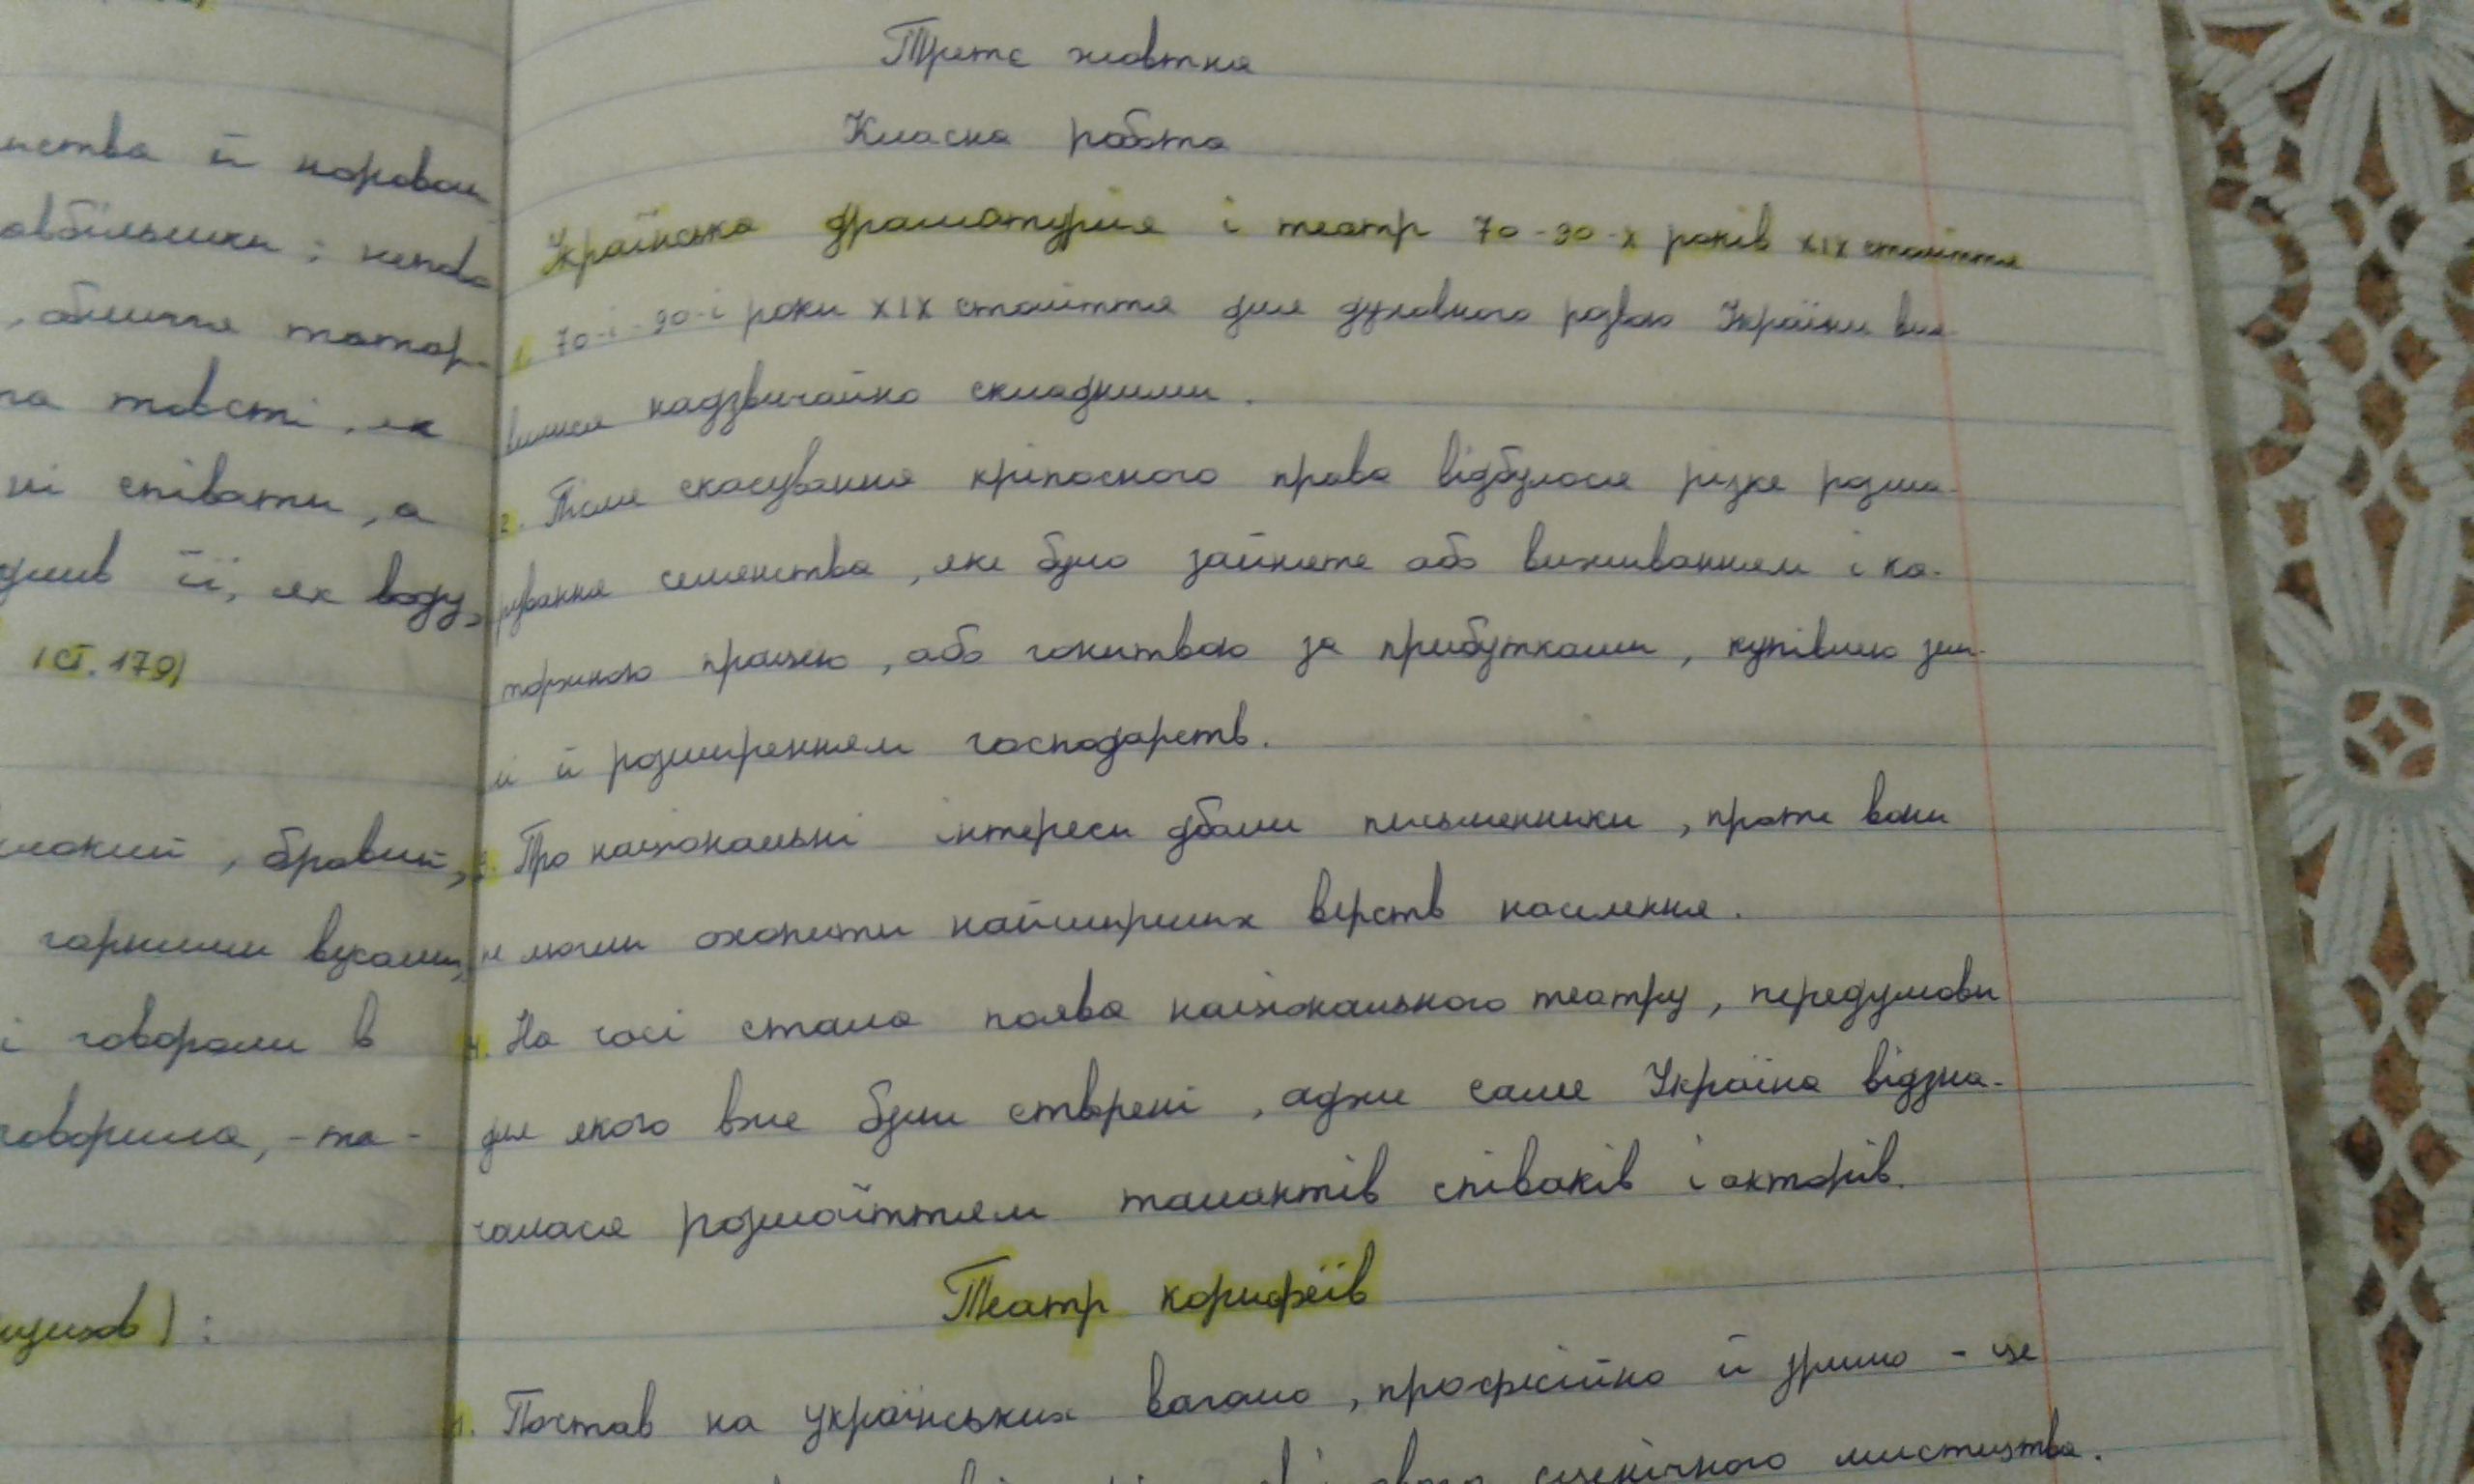 нства й норовом
овбільшки; непово
, обличчя татар-
та товсті, як
ні співати, а
див її, як воду,
(ст. 179)
окий, бравий,
гарними вусами,
і говорами в
говорила, - та -
Третє жовтня
Класна робота
Українська драматургія і театр 70-90-х років XIX століття
1. 70-і-90-і роки XIX століття для духовного розвою України вия-
вилися надзвичайно складними.
2. Після скасування кріпосного права відбулося різке розша-
рування селянства, яке було зайняте або виживанням і ка-
торжною працею, або гонитвою за прибутками, купівлею зем-
лі й розширенням господарств.
3. Про національні інтереси дбали письменники, проте вони
не могли охопити найширших верств населення.
4. На часі стала поява національного театру, передумови
для якого вже були створені, адже саме Україна відзна-
чалася розмаїттям талантів співаків і акторів.
Театр корифеїв
1. Постав на українських вагомо, професійно й зримо - це
сценічного мистецтва.